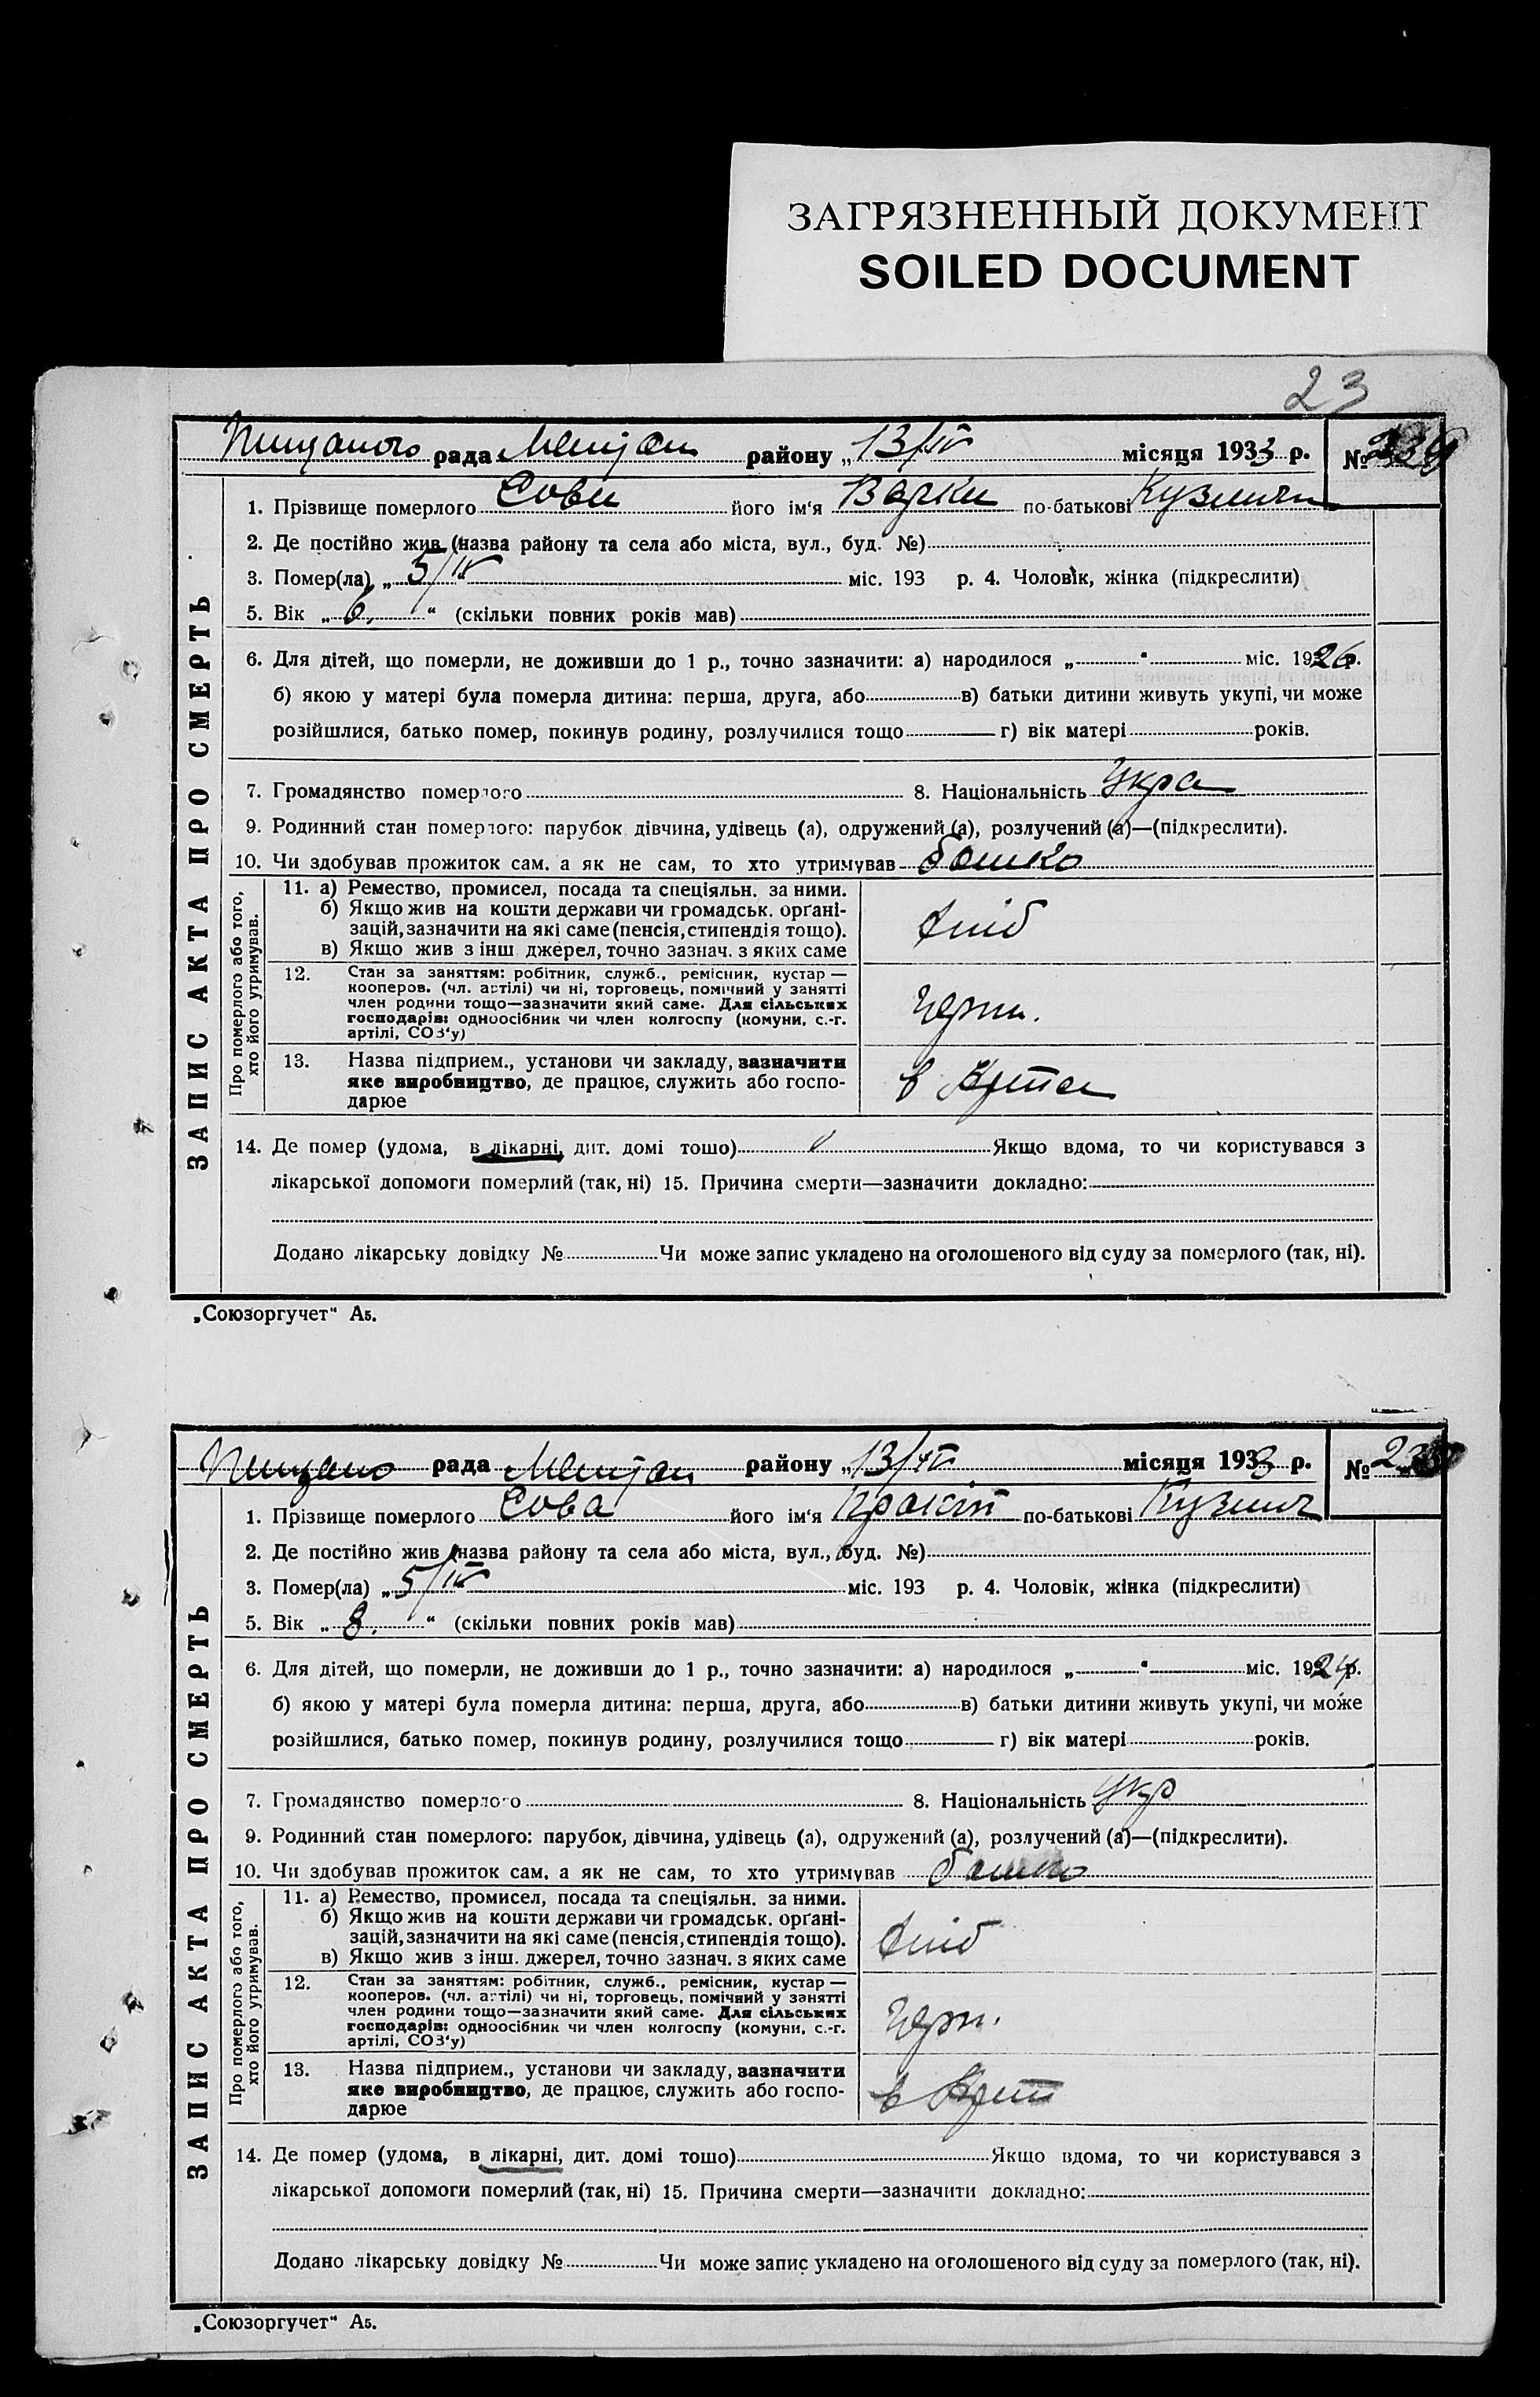 ЗАГРЯЗНЕННЫЙ ДОКУМЕНТ
SOILED DOCUMENT
23
рада район у „13/IV місяця 1933 р. №
1. Прізвище померлого Сови його ім'я Варки по-батькові
2. Де постійно жив (назва району та села або міста, вул., буд. №)
3. Помер(ла) „5/IV міс. 193 р. 4. Чоловік, жінка (підкреслити)
5. Вік „6." (скільки повних років мав)
6. Для дітей, що померли, не доживши до 1 р., точно зазначити: а) народилося „ " міс. 1926 р.
б) якою у матері була померла дитина: перша, друга, або в) батьки дитини живуть укупі, чи може
розійшлися, батько помер, покинув родину, розлучилися тощо г) вік матері років.
7. Громадянство померлого 8. Національність Укра
9. Родинний стан померлого: парубок, дівчина, удівець (а), одружений (а), розлучений (а)—(підкреслити).
10. Чи здобував прожиток сам, а як не сам, то хто утримував батько
ЗАПИС АКТА ПРО СМЕРТЬ
Про померлого або того,
хто його утримував.
11. а) Ремество, промисел, посада та спеціяльн. за ними.
б) Якщо жив на кошти держави чи громадськ. орґані-
зацій, зазначити на які саме (пенсія, стипендія тощо).
в) Якщо жив з інш. джерел, точно зазнач. з яких саме
12. Стан за заняттям: робітник, служб., ремісник, кустар—
кооперов. (чл. артілі) чи ні, торговець, помічний у занятті
член родини тощо—зазначити який саме. Для сільських
господарів: одноосібник чи член колгоспу (комуни, с.-г.
артілі, СОЗ'у)
13. Назва підприєм., установи чи закладу, зазначити
яке виробництво, де працює, служить або госпо-
дарює
14. Де помер (удома, в лікарні, дит. домі тощо) Якщо вдома, то чи користувався з
лікарської допомоги померлий (так, ні) 15. Причина смерти—зазначити докладно:
Додано лікарську довідку № Чи може запис укладено на оголошеного від суду за померлого (так, ні).
„Союзоргучет" А5.
рада району „13/IV місяця 1933 р. №
1. Прізвище померлого Сова його ім'я по-батькові Кузмич
2. Де постійно жив (назва району та села або міста, вул., буд. №)
3. Помер(ла) „5/IV міс. 193 р. 4. Чоловік, жінка (підкреслити)
5. Вік „8." (скільки повних років мав)
6. Для дітей, що померли, не доживши до 1 р., точно зазначити: а) народилося „ " міс. 1924 р.
б) якою у матері була померла дитина: перша, друга, або в) батьки дитини живуть укупі, чи може
розійшлися, батько помер, покинув родину, розлучилися тощо г) вік матері років.
7. Громадянство померлого 8. Національність Укр
9. Родинний стан померлого: парубок, дівчина, удівець (а), одружений (а), розлучений (а)—(підкреслити).
10. Чи здобував прожиток сам, а як не сам, то хто утримував батько
ЗАПИС АКТА ПРО СМЕРТЬ
Про померлого або того,
хто його утримував.
11. а) Ремество, промисел, посада та спеціяльн. за ними.
б) Якщо жив на кошти держави чи громадськ. орґані-
зацій, зазначити на які саме (пенсія, стипендія тощо).
в) Якщо жив з інш. джерел, точно зазнач. з яких саме
12. Стан за заняттям: робітник, служб., ремісник, кустар—
кооперов. (чл. артілі) чи ні, торговець, помічний у занятті
член родини тощо—зазначити який саме. Для сільських
господарів: одноосібник чи член колгоспу (комуни, с.-г.
артілі, СОЗ'у)
13. Назва підприєм., установи чи закладу, зазначити
яке виробництво, де працює, служить або госпо-
дарює
14. Де помер (удома, в лікарні, дит. домі тощо) Якщо вдома, то чи користувався з
лікарської допомоги померлий (так, ні) 15. Причина смерти—зазначити докладно:
Додано лікарську довідку № Чи може запис укладено на оголошеного від суду за померлого (так, ні).
„Союзоргучет" А5.